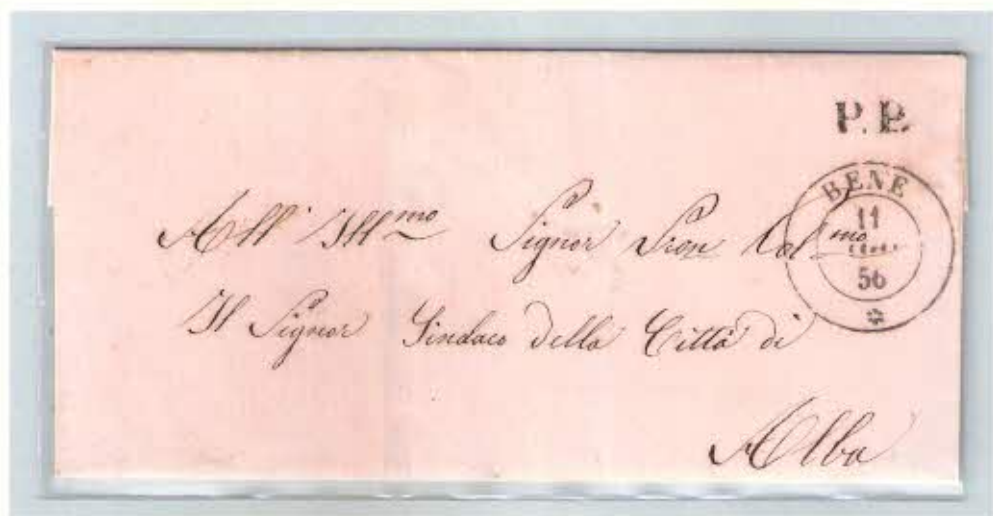 P.P.
BENE
11
56
All' Ill.mo Signor Pron Col.mo
Il Signor Sindaco della Città di
Alba